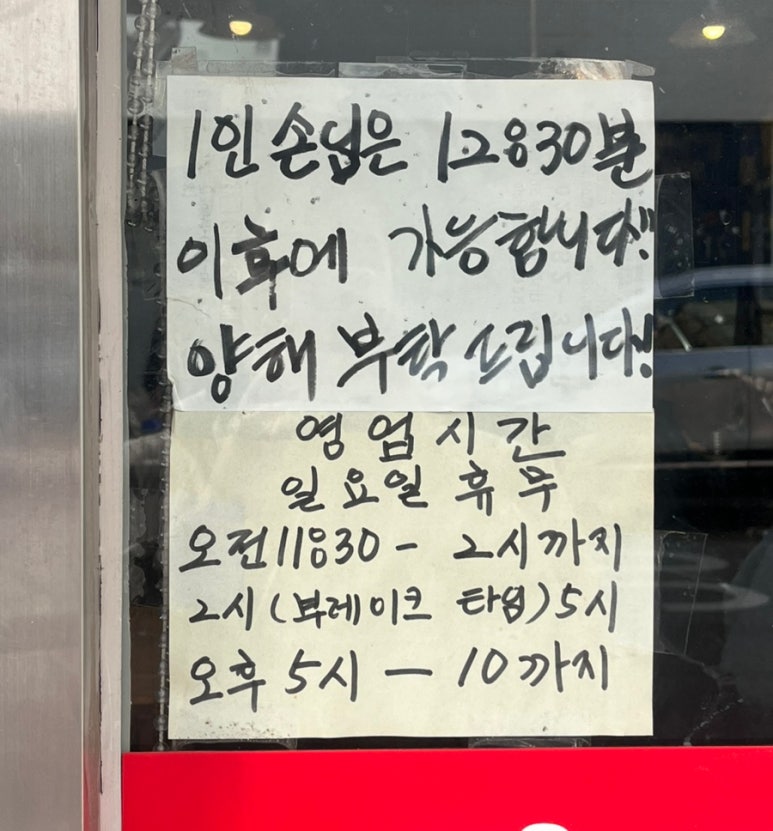 1인 손님은 12:30분
이후에 가능합니다!!
양해 부탁 드립니다!
영업시간
일요일 휴무
오전 11:30 - 2시까지
2시 (브레이크 타임) 5시
오후 5시 - 10까지